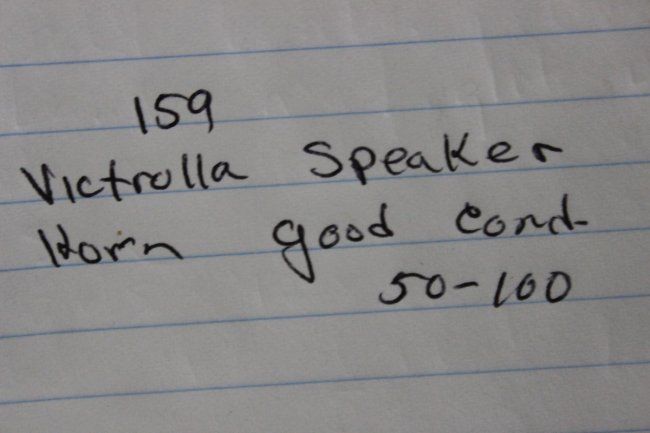 159
Victrolla Speaker
Horn good cond-
50-100